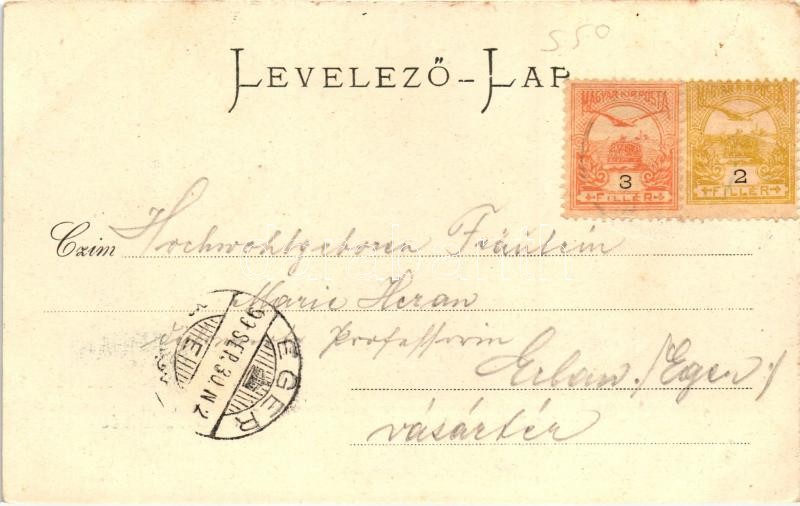 550
LEVELEZŐ-LAP
MAGYAR KIR. POSTA
3
FILLÉR
MAGYAR KIR. POSTA
2
FILLÉR
Czim Hochwohlgeboren Fräulein
Marie Heran
Professorin
Erlau /Eger/
vásártér
EGER